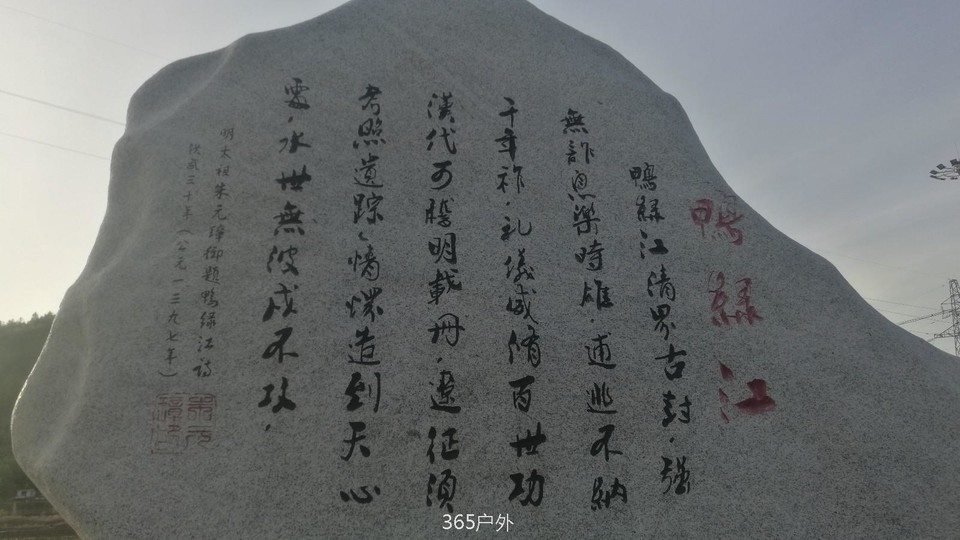 鴨綠江
鴨緑江清界古封，强
無詐息樂時雍，逋逃不納
千年祚，礼儀咸脩百世功
漢代可稽明載冊，遼征須
考照遺踪，情懷造到天心
處，水世無波戍不攻，
明太祖朱元璋御題鴨绿江詩
洪武三十年（公元一三九七年）
365户外